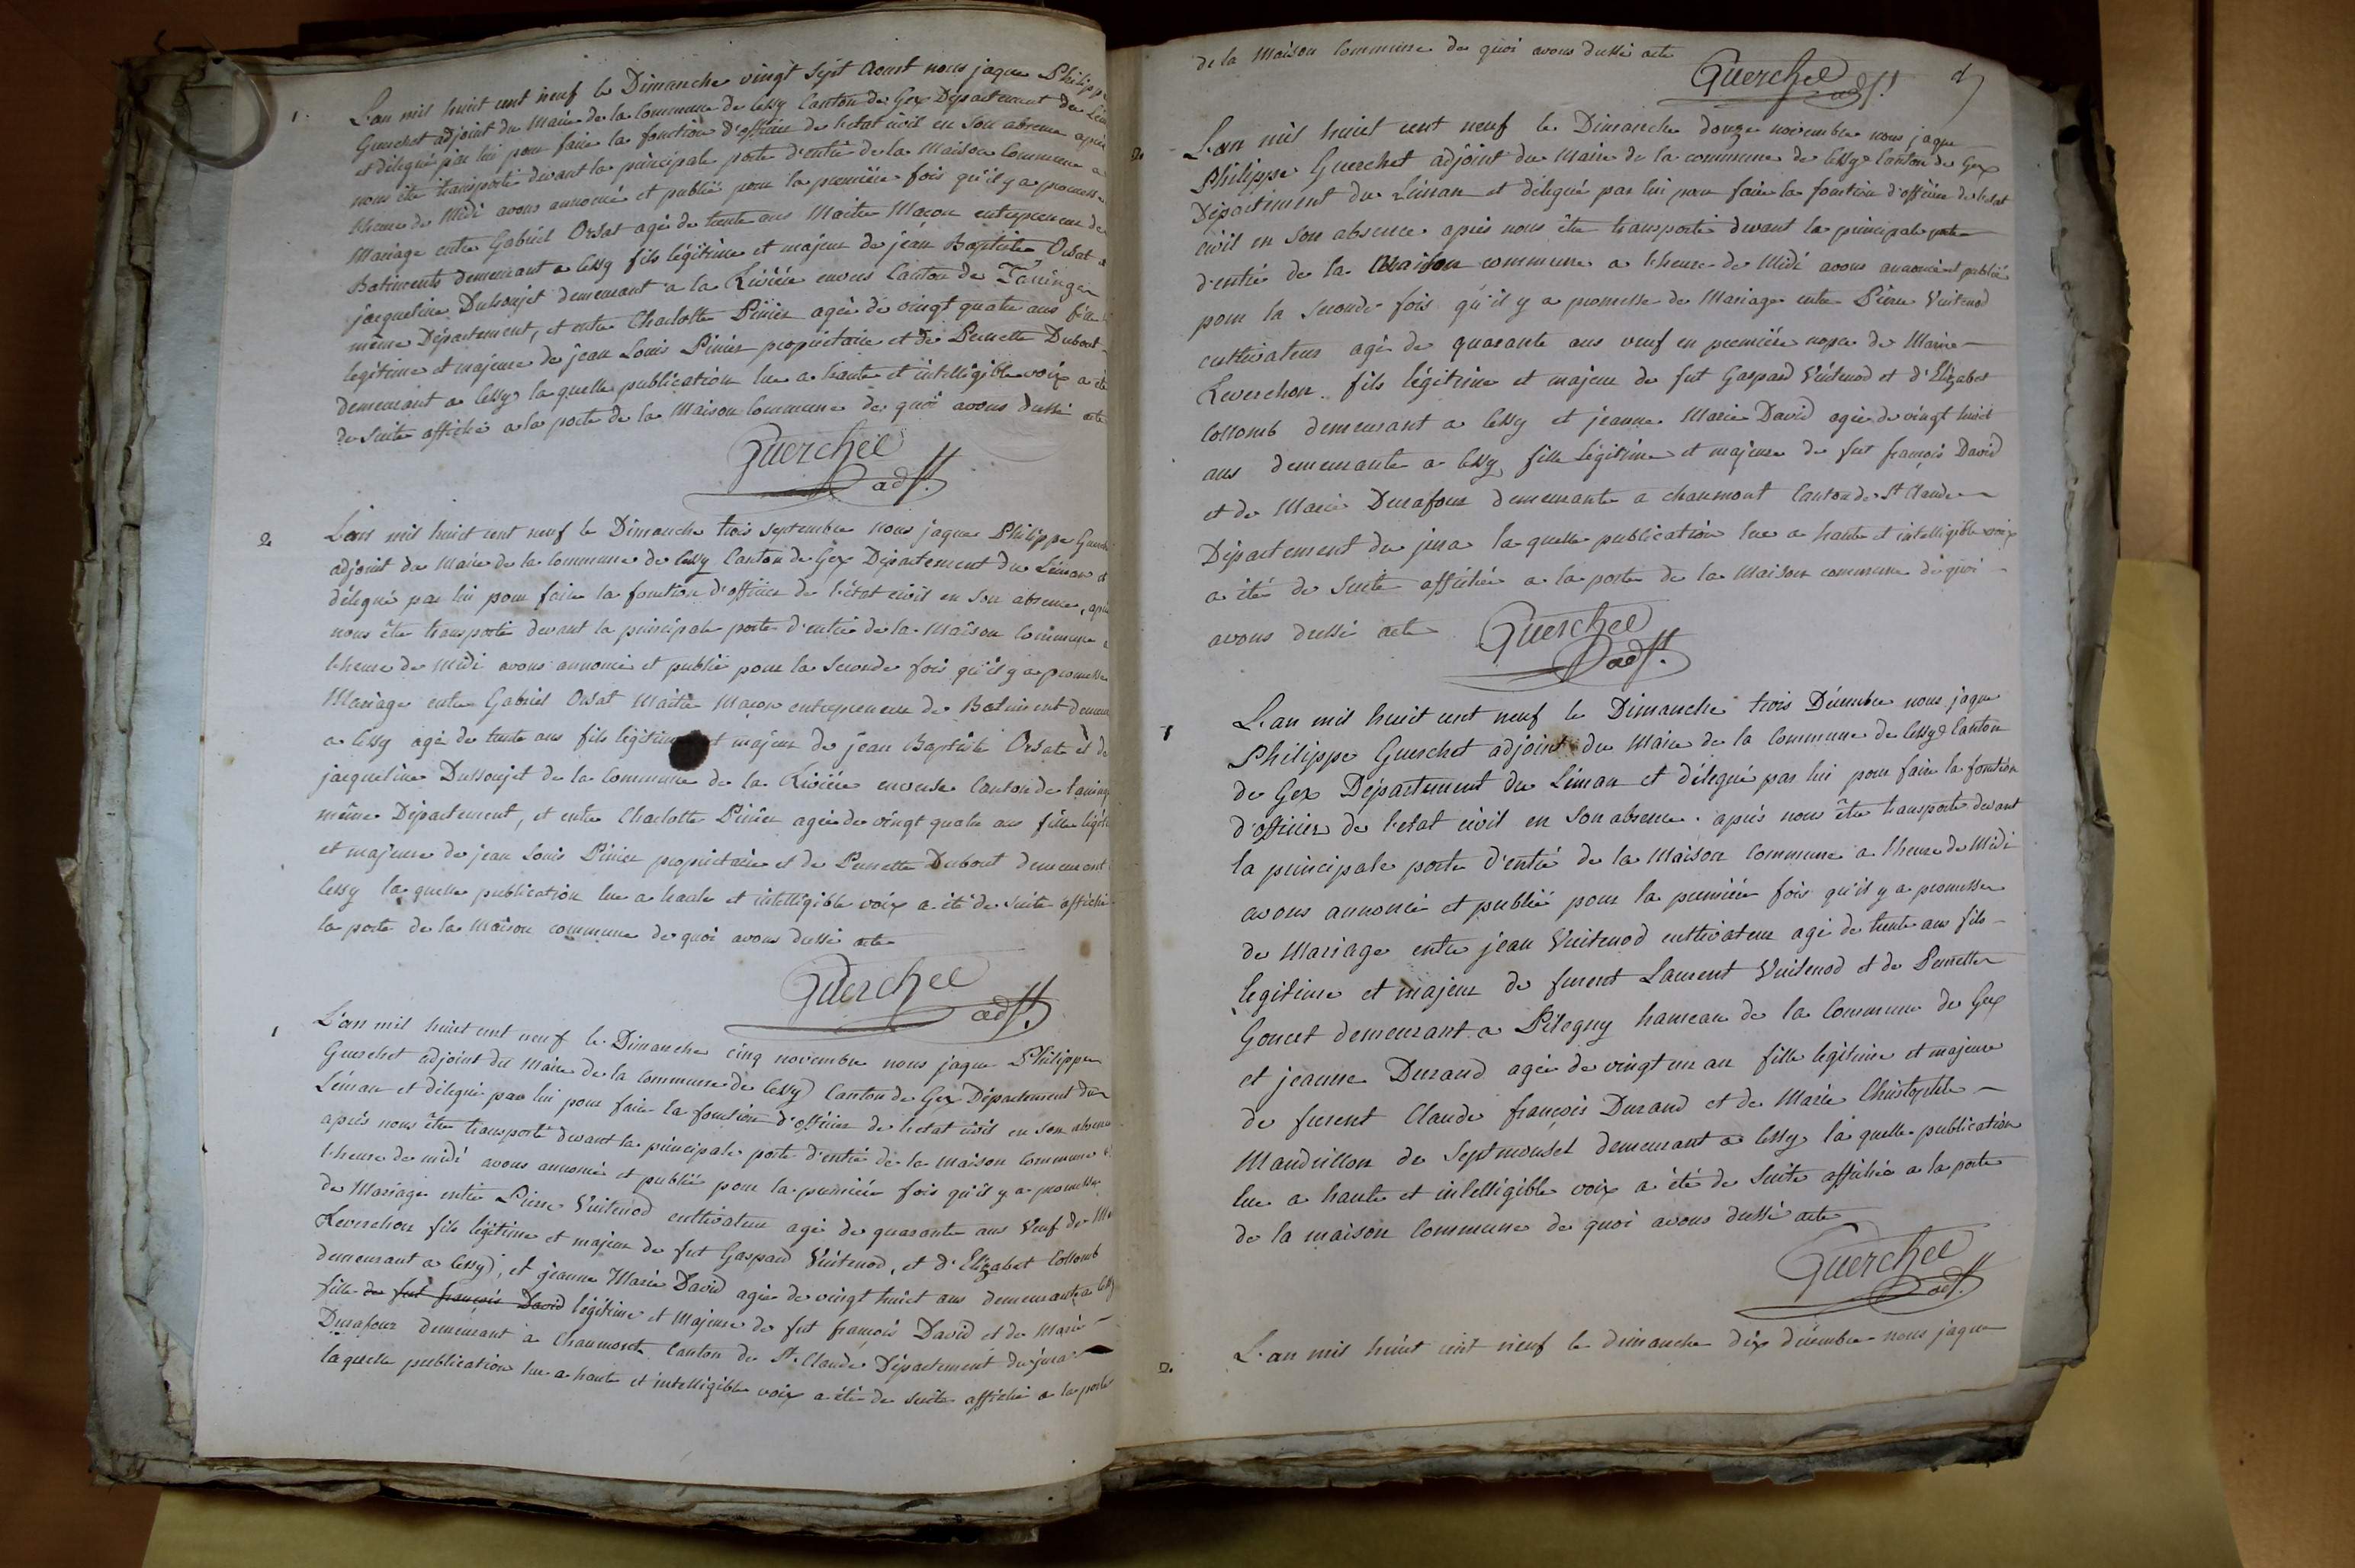 1.
L'an mil huit cent neuf le Dimanche vingt sept Aoust nous jaque Philippe
Guerchet adjoint du Maire de la Commune de Cessy Canton de Gex Département du Lém
et délegué par lui pour faire la fonction d'officier de l'etat civil en son absence après
nous être transporté devant la principale porte d'entré de la Maison Commune a
l'heure de Midi avons annoncé et publié pour la première fois qu'il y a promesse
Mariage entre Gabriel Orsat agé de trente ans Maitre Macon entrepreneur de
Batiments demeurant a Cessy fils légitime et majeur de jean Baptiste Orsat
jacqueline Dussoujet demeurant a la Rivière Canton de Taninge
même Département, et entre Charlotte Pinier agée de vingt quatre ans
legitime et majeure de jean Louis Pinier propriétaire et de Pernette Dubout
demeurant a Cessy la quelle publication lue a haute et intelligible voix a été
de Suite affiché a la porte de la Maison Commune de quoi avons dressé acte
Guerchet
adjt.
2
L'an mil huit cent neuf le Dimanche trois Septembre nous jaque Philippe
adjoint du Maire de la Commune de Cessy Canton de Gex Département du Léman et
délegué par lui pour faire la fonction d'officier de l'état civil en son absence, après
nous être transporté devant la principale porte d'entrée de la Maison Commune a
l'heure de midi avons annoncé et publié pour la Seconde fois qu'il y a promesse
Mariage entre Gabriel Orsat Maitre Macon entrepreneur de Batiment
a Cessy agé de trente ans fils légitime et majeur de jean Baptiste Orsat et de
jacqueline Dussoujet de la Commune de la Rivière Canton de
même Département, et entre Charlotte Pinier agée de vingt quatre ans fille
et majeure de jean Louis Pinier propriétaire et de Pernette Dubout demeurant
Cessy la quelle publication lue a haute et intelligible voix a été de Suite affiché
la porte de la Maison commune de quoi avons dressé acte
Guerchet
adjt.
1
L'an mil huit cent neuf le Dimanche cinq novembre nous jaque Philippe
Guerchet adjoint du Maire de la Commune de Cessy Canton de Gex Département du
Léman et délegué par lui pour faire la fonction d'officier de l'etat civil en son absence
après nous être transporté devant la principale porte d'entré de la Maison Commune
l'heure de midi avons annoncé et publié pour la première fois qu'il y a promesse
de Mariage entre Pierre Vuitenod cultivateur agé de quarante ans Veuf de
Reverchon fils légitime et majeur de fut Gaspard Vuitenod, et d'Elizabet Collomb
demeurant a Cessy, et jeanne Marie David agée de vingt huit ans demeurante a
fille de fut françois David légitime et Majeure de fut françois David et de Marie
Durafour demeurant a Chaumont Canton de St. Claude Département du jura
laquelle publication lue a haute et intelligible voix a été de Suite affiché a la porte
de la Maison Commune de quoi avons dressé acte
Guerchet
adjt.
2.
L'an mil huit cent neuf le Dimanche douze novembre nous jaque
Philippe Guerchet adjoint du Maire de la commune de Cessy Canton de Gex
Département du Léman et délegué par lui pour faire la fonction d'officier de l'etat
civil en son absence après nous être transporté devant la principale porte
d'entré de la Maison commune a l'heure de Midi avons annoncé et publié
pour la Seconde fois qu'il y a promesse de Mariage entre Pierre Vuitenod
cultivateur agé de quarante ans veuf en première nopce de Marie
Reverchon fils légitime et majeur de fut Gaspard Vuitenod et d'Elizabet
Collomb demeurant a Cessy et jeanne Marie David agée de vingt huit
ans demeurante a Cessy fille Légitime et majeure de fut françois David
et de Marie Durafour demeurante a chaumont Canton de St Claude
Département du jura la quelle publication lue a haute et intelligible voix
a été de Suite affichée a la porte de la Maison commune de quoi
avons dressé acte
Guerchet
adjt.
1
L'an mil huit cent neuf le Dimanche trois Décembre nous jaque
Philippe Guerchet adjoint du Maire de la Commune de Cessy Canton
de Gex Département du Léman et délegué par lui pour faire la fonction
d'officier de l'etat civil en son absence. après nous être transporté devant
la principale porte d'entré de la Maison Commune a l'heure de Midi
avons annoncé et publié pour la première fois qu'il y a promesse
de Mariage entre jean Vuitenod cultivateur agé de trente ans fils
legitime et majeur de furent Laurent Vuitenod et de Pernette
Goncet demeurant a Pitegny hameau de la Commune de Gex
et jeanne Durand agée de vingt un an fille legitime et majeure
de furent Claude françois Durand et de Marie Christophle
Mandrillon de Septmoncel demeurant a Cessy la quelle publication
lue a haute et intelligible voix a été de Suite affichée a la porte
de la maison Commune de quoi avons dressé acte
Guerchet
adjt.
2.
L'an mil huit cent neuf le dimanche dix décembre nous jaque